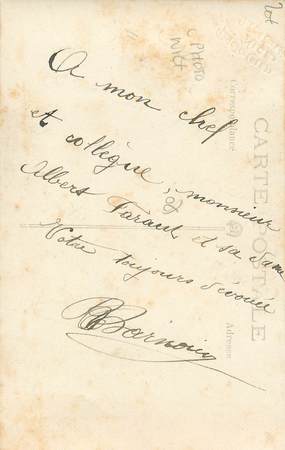 A mon chef
et collègue, monsieur
Albert Faraut et sa dame
Votre toujours dévouée
CARTE POSTALE
Correspondance
Adresse
PHOTO